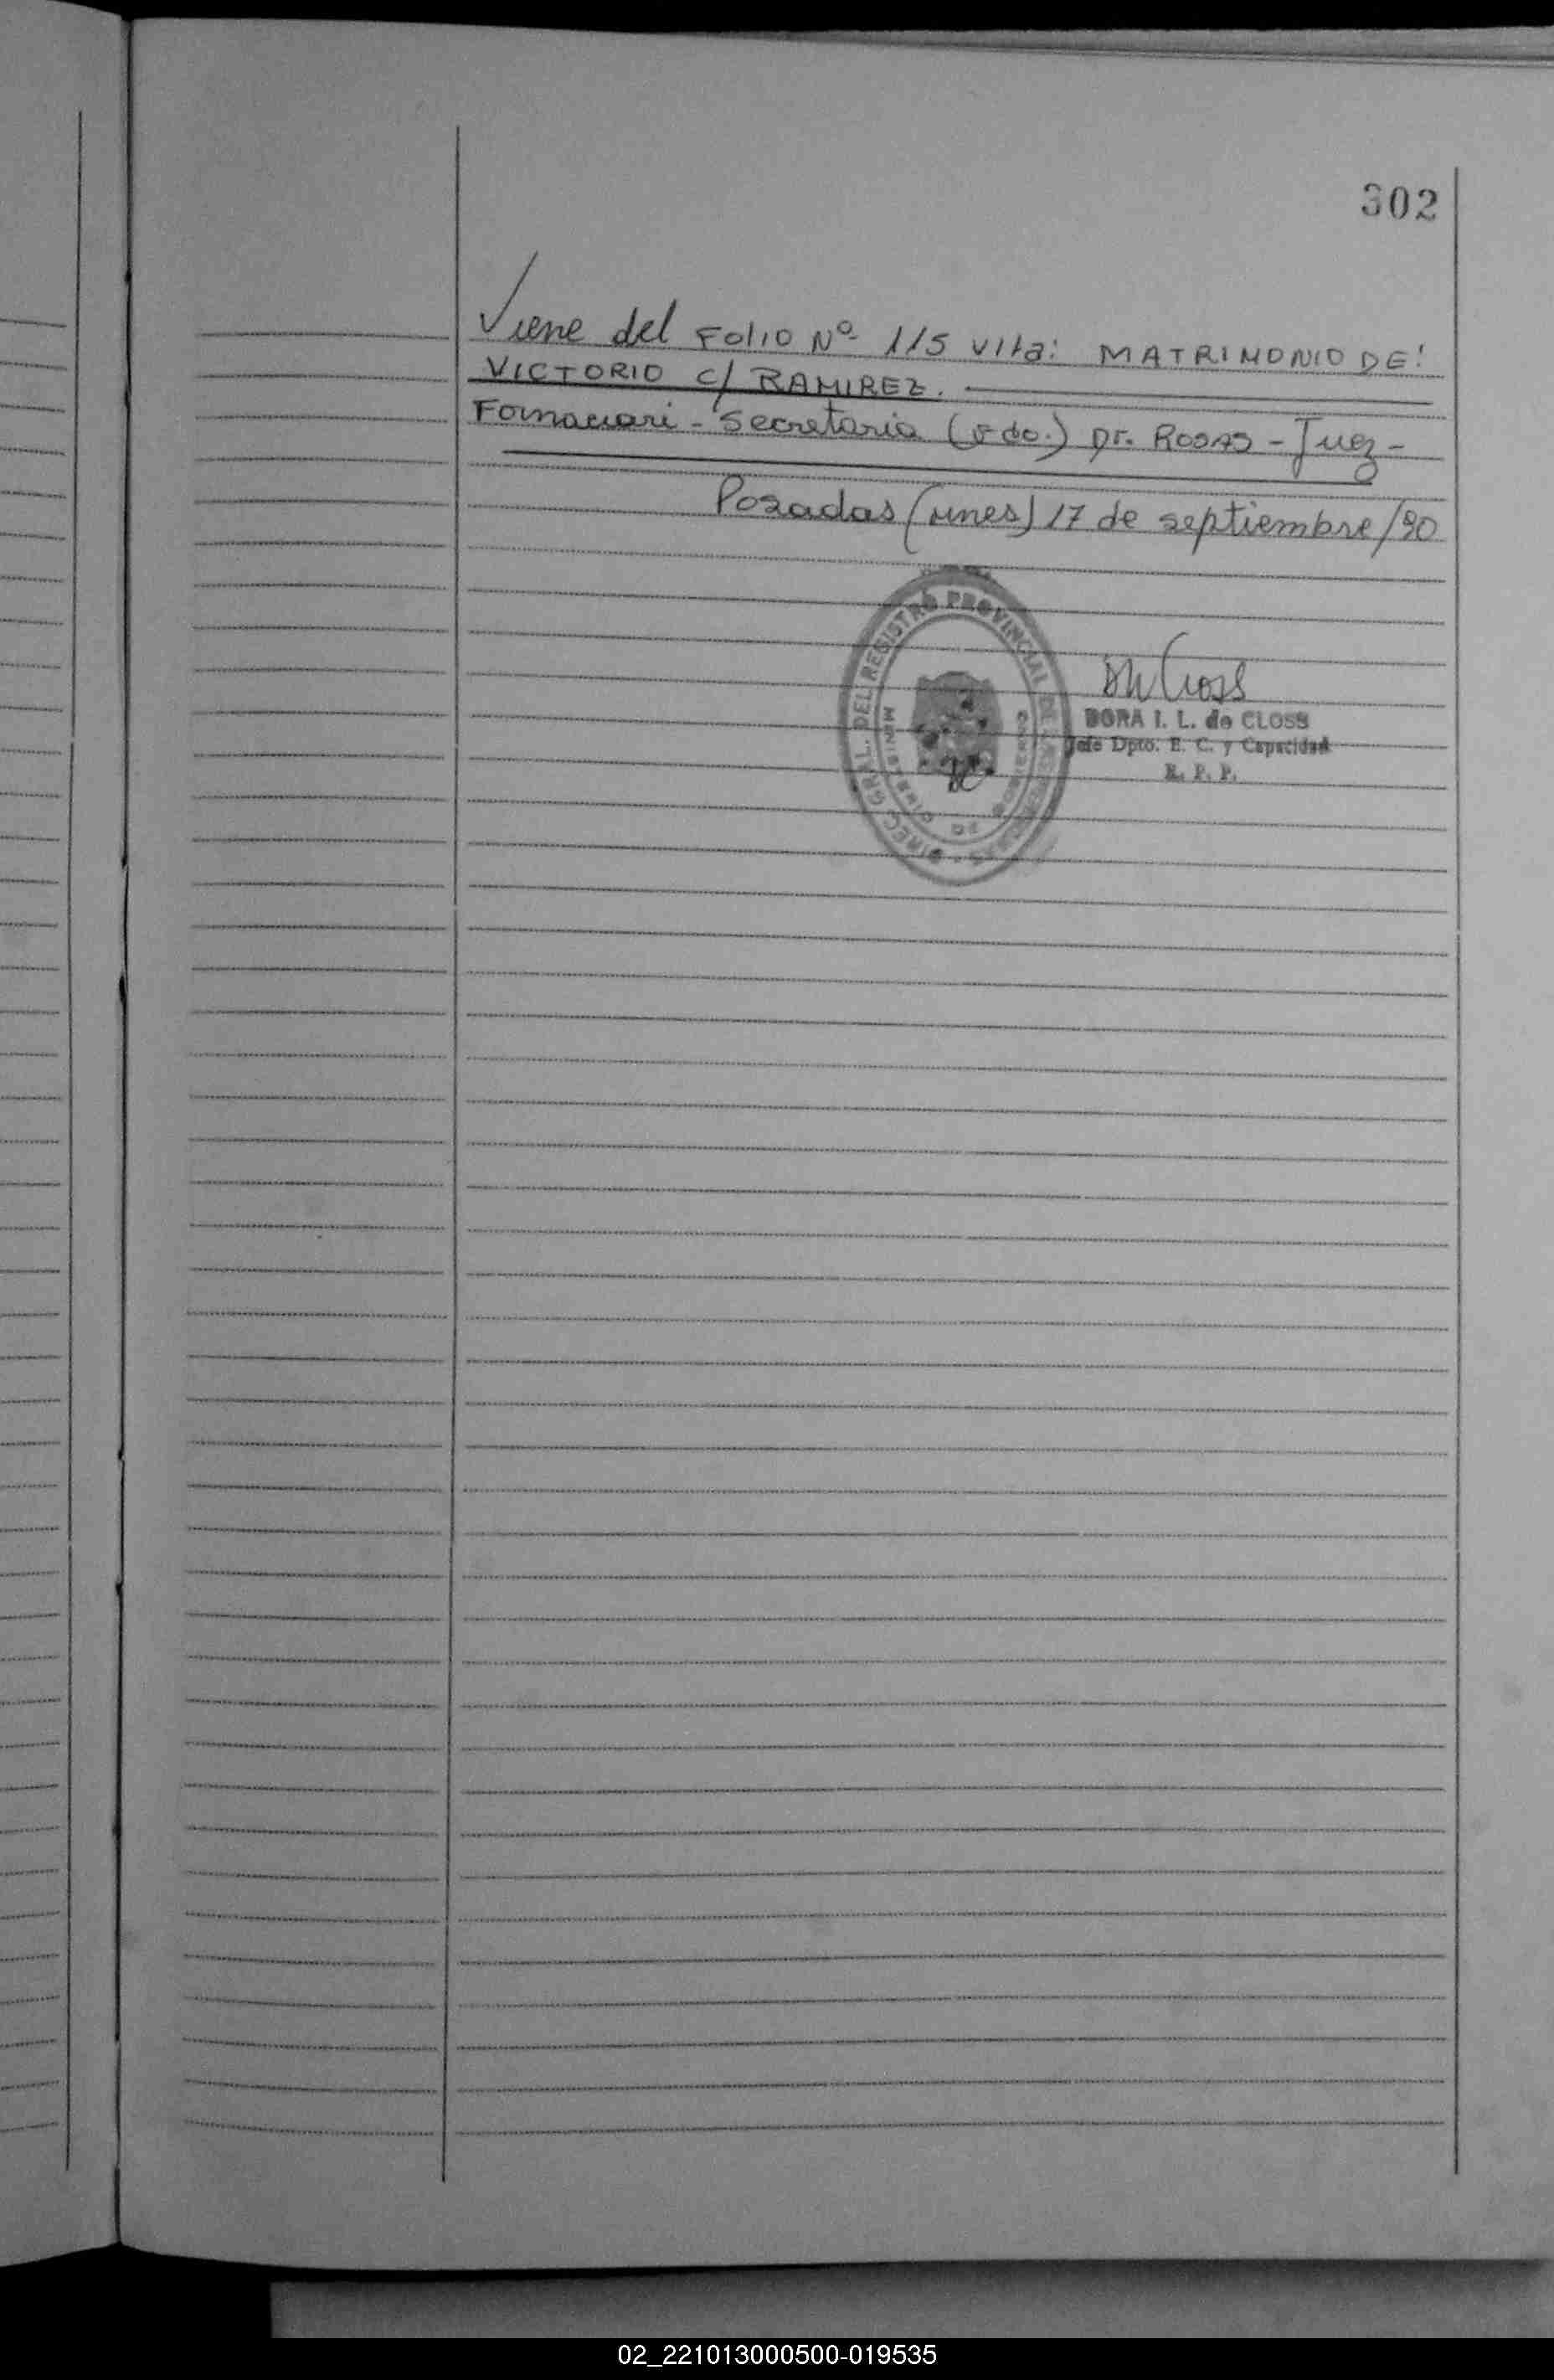 302
Viene del Folio Nº 115 vlta: MATRIMONIO DE:
VICTORIO C/ RAMIREZ.
Fornaciari - Secretaria (Fdo.) Dr. ROSAS - Juez -
Posadas (Mnes) 17 de septiembre/90
DIREC. GRAL. DEL REGISTRO PROVINCIAL DE LAS PERSONAS
MINISTERIO DE GOBIERNO
DORA I. L. de CLOSS
Jefe Dpto. E. C. y Capacidad
R. P. P.
02_221013000500-019535